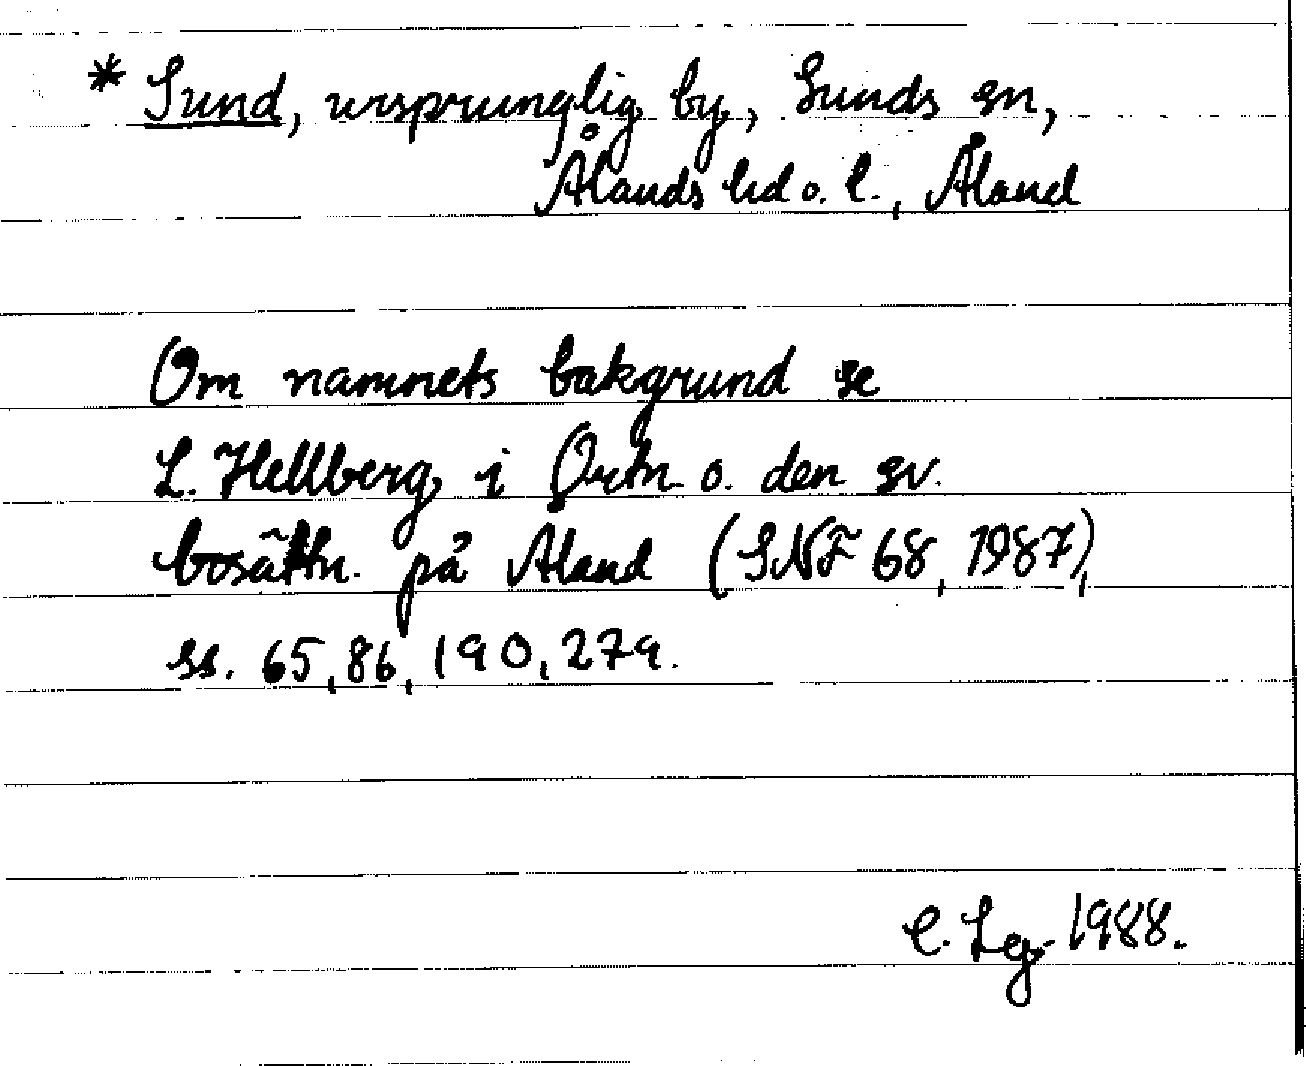 * Sund, ursprunglig by, Sunds sn,
Ålands hd o. l., Åland
Om namnets bakgrund se
L. Hellberg i Ortn. o. den sv.
bosättn. på Åland (SNF 68, 1987),
ss. 65, 86, 190, 279.
C. Lg. 1988.